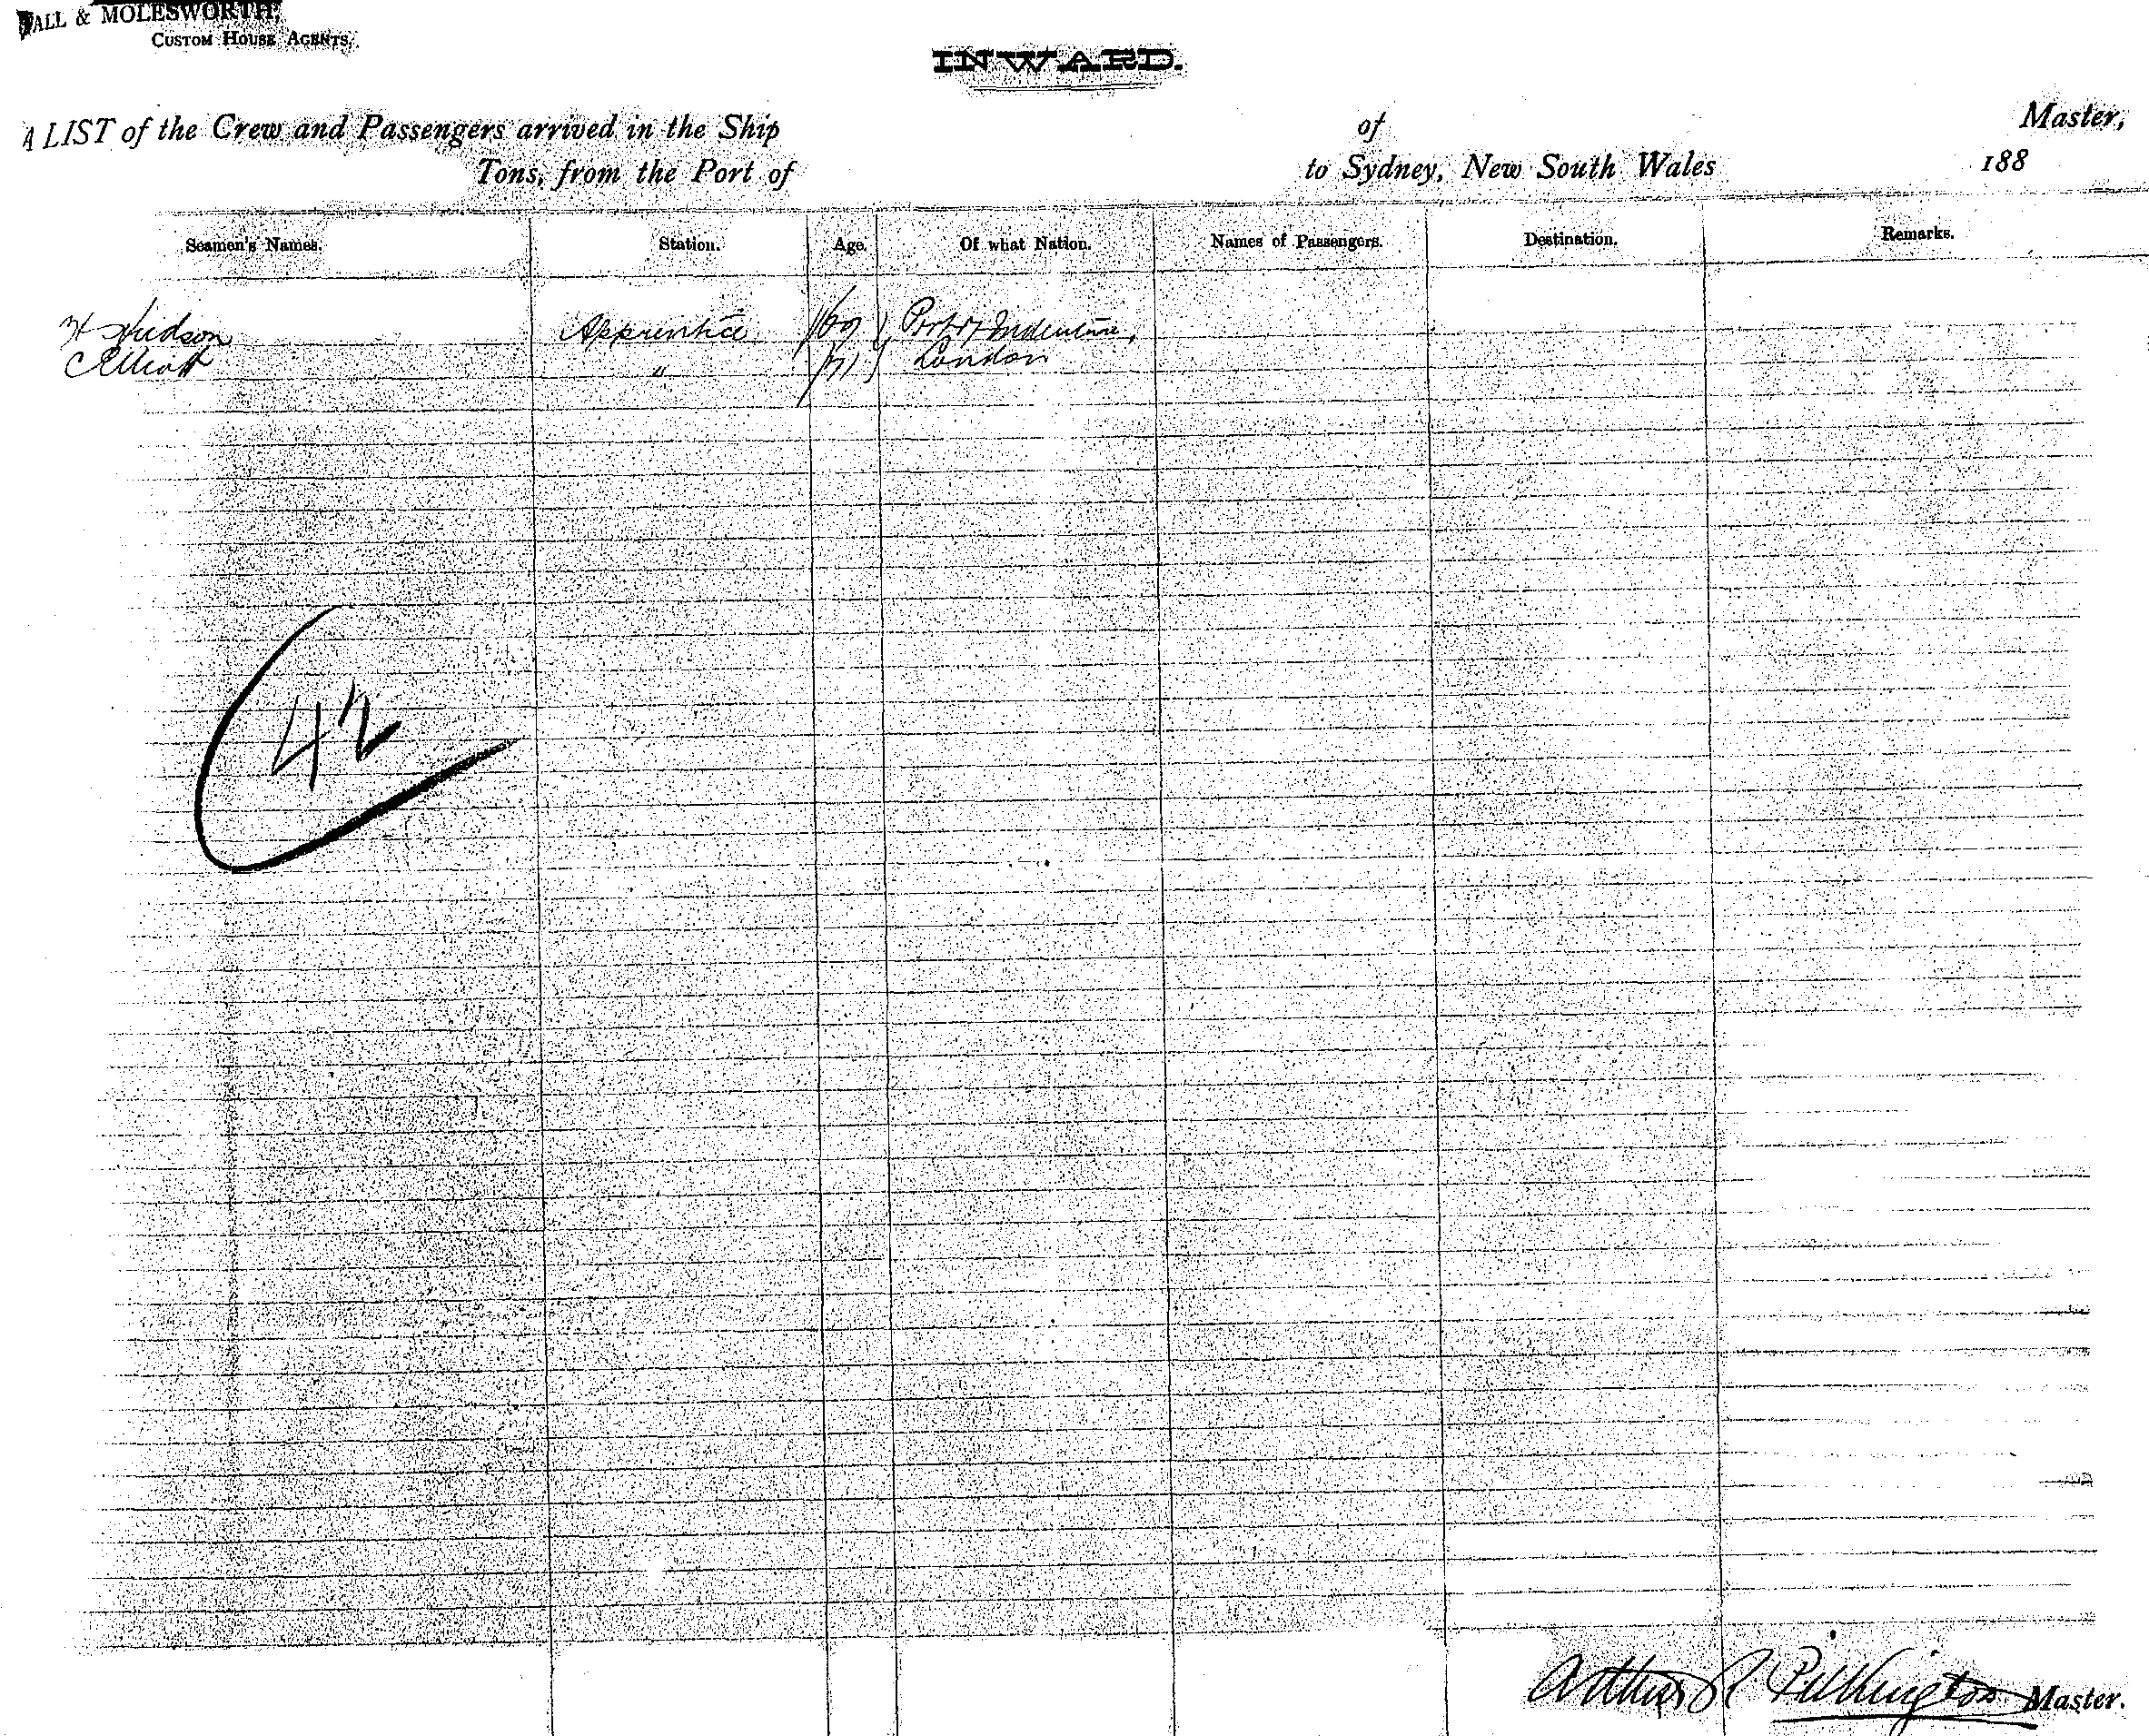 ALL & MOLESWORTH,
CUSTOM HOUSE AGENTS,
INWARD.
A LIST of the Crew and Passengers arrived in the Ship of Master,
Tons, from the Port of to Sydney, New South Wales 188
Seamen's Names. Station. Age. Of what Nation. Names of Passengers. Destination. Remarks.
H Hudson Apprentice /69 Port of Indenture,
C Elliott " /71 London
42
Arthur R Pilkington Master.